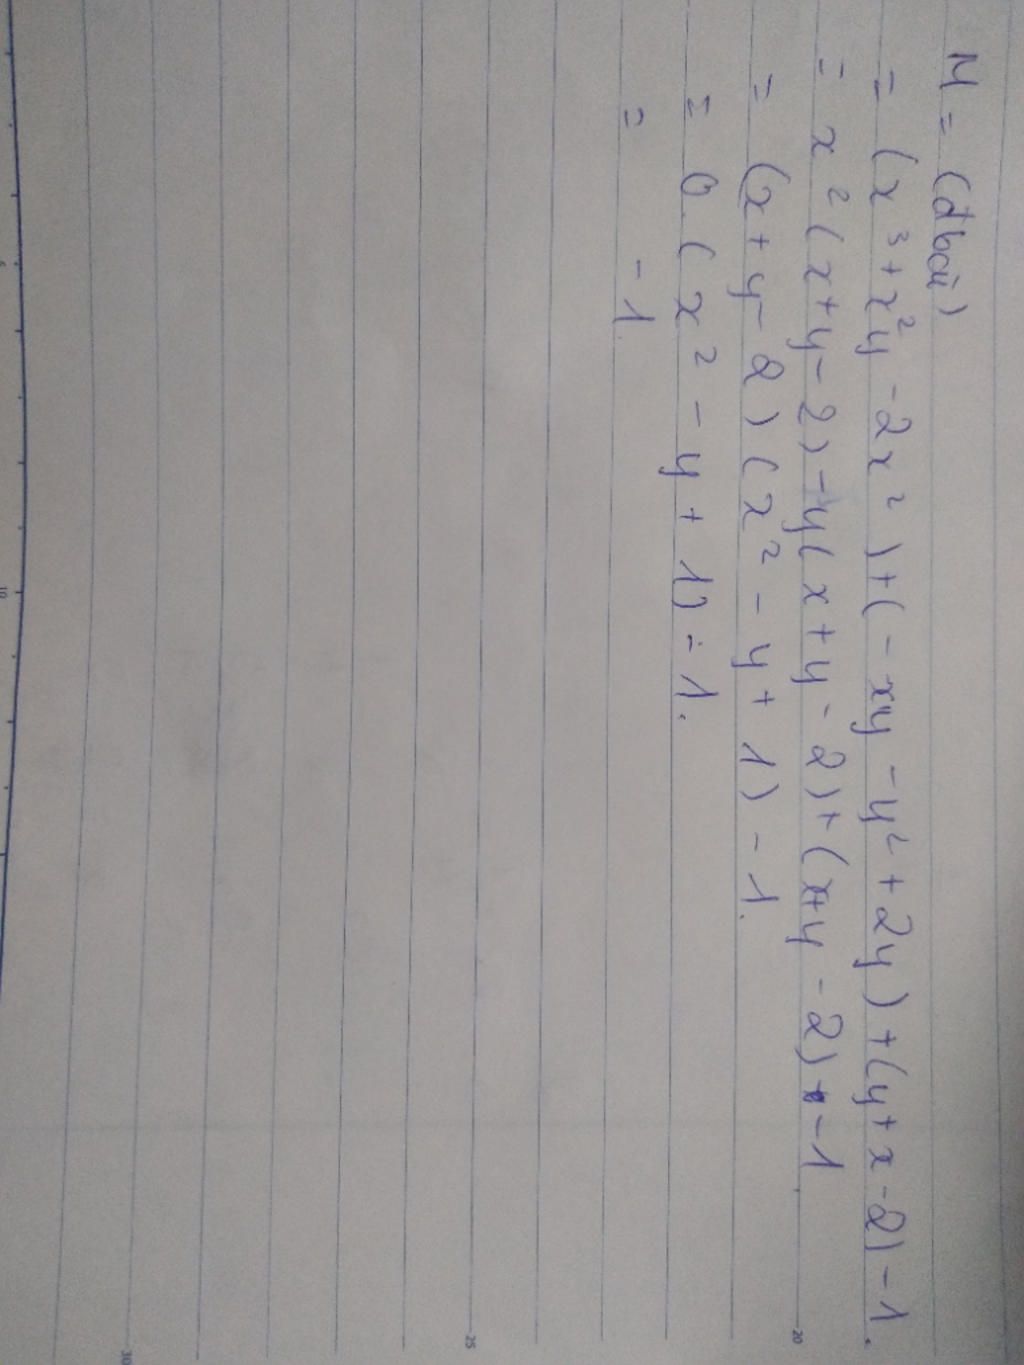 M = (đbài)
= (x³ + x²y - 2x²) + (- xy - y² + 2y) + (y + x - 2) - 1.
= x² (x + y - 2) - y (x + y - 2) + (x + y - 2) - 1
= (x + y - 2) (x² - y + 1) - 1.
= 0. (x² - y + 1) - 1.
= - 1
20
25
30